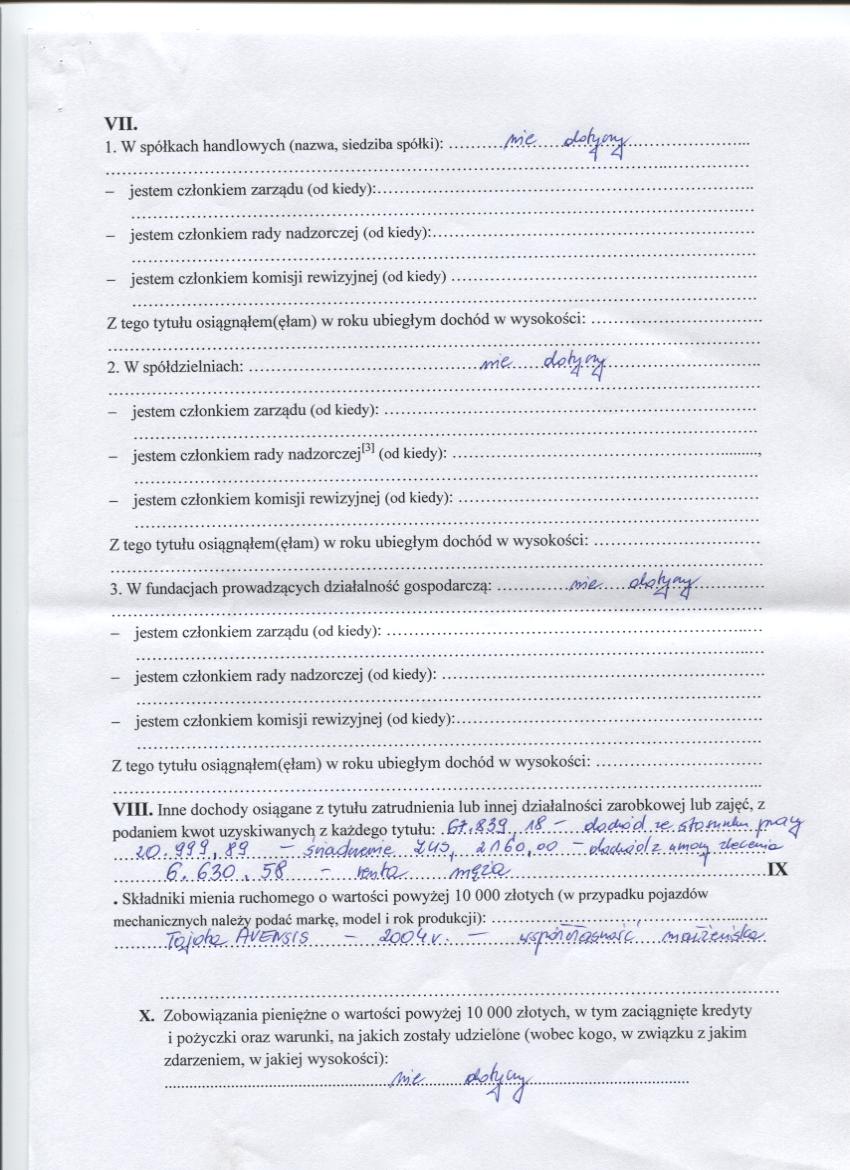 VII.
1. W spółkach handlowych (nazwa, siedziba spółki): ..........nie dotyczy..........
..........
– jestem członkiem zarządu (od kiedy):..........
..........
– jestem członkiem rady nadzorczej (od kiedy):..........
..........
– jestem członkiem komisji rewizyjnej (od kiedy) ..........
..........
Z tego tytułu osiągnąłem(ęłam) w roku ubiegłym dochód w wysokości: ..........
..........
2. W spółdzielniach: ..........nie dotyczy..........
..........
– jestem członkiem zarządu (od kiedy): ..........
..........
– jestem członkiem rady nadzorczej[3] (od kiedy): ..........,
..........
– jestem członkiem komisji rewizyjnej (od kiedy): ..........
..........
Z tego tytułu osiągnąłem(ęłam) w roku ubiegłym dochód w wysokości: ..........
..........
3. W fundacjach prowadzących działalność gospodarczą: ..........nie dotyczy..........
..........
– jestem członkiem zarządu (od kiedy): ..........
..........
– jestem członkiem rady nadzorczej (od kiedy): ..........
..........
– jestem członkiem komisji rewizyjnej (od kiedy):..........
..........
Z tego tytułu osiągnąłem(ęłam) w roku ubiegłym dochód w wysokości: ..........
..........
VIII. Inne dochody osiągane z tytułu zatrudnienia lub innej działalności zarobkowej lub zajęć, z
podaniem kwot uzyskiwanych z każdego tytułu: .67.839,18 – dochód ze stosunku pracy
20.999,89 – świadczenie ZUS, 2160,00 – dochód z umowy zlecenia
6.630,58 – renta męża..........IX
. Składniki mienia ruchomego o wartości powyżej 10 000 złotych (w przypadku pojazdów
mechanicznych należy podać markę, model i rok produkcji): ..........
Tojota AVENSIS – 2004 r. – współwłasność małżeńska
..........
X. Zobowiązania pieniężne o wartości powyżej 10 000 złotych, w tym zaciągnięte kredyty
i pożyczki oraz warunki, na jakich zostały udzielone (wobec kogo, w związku z jakim
zdarzeniem, w jakiej wysokości):
..........nie dotyczy..........